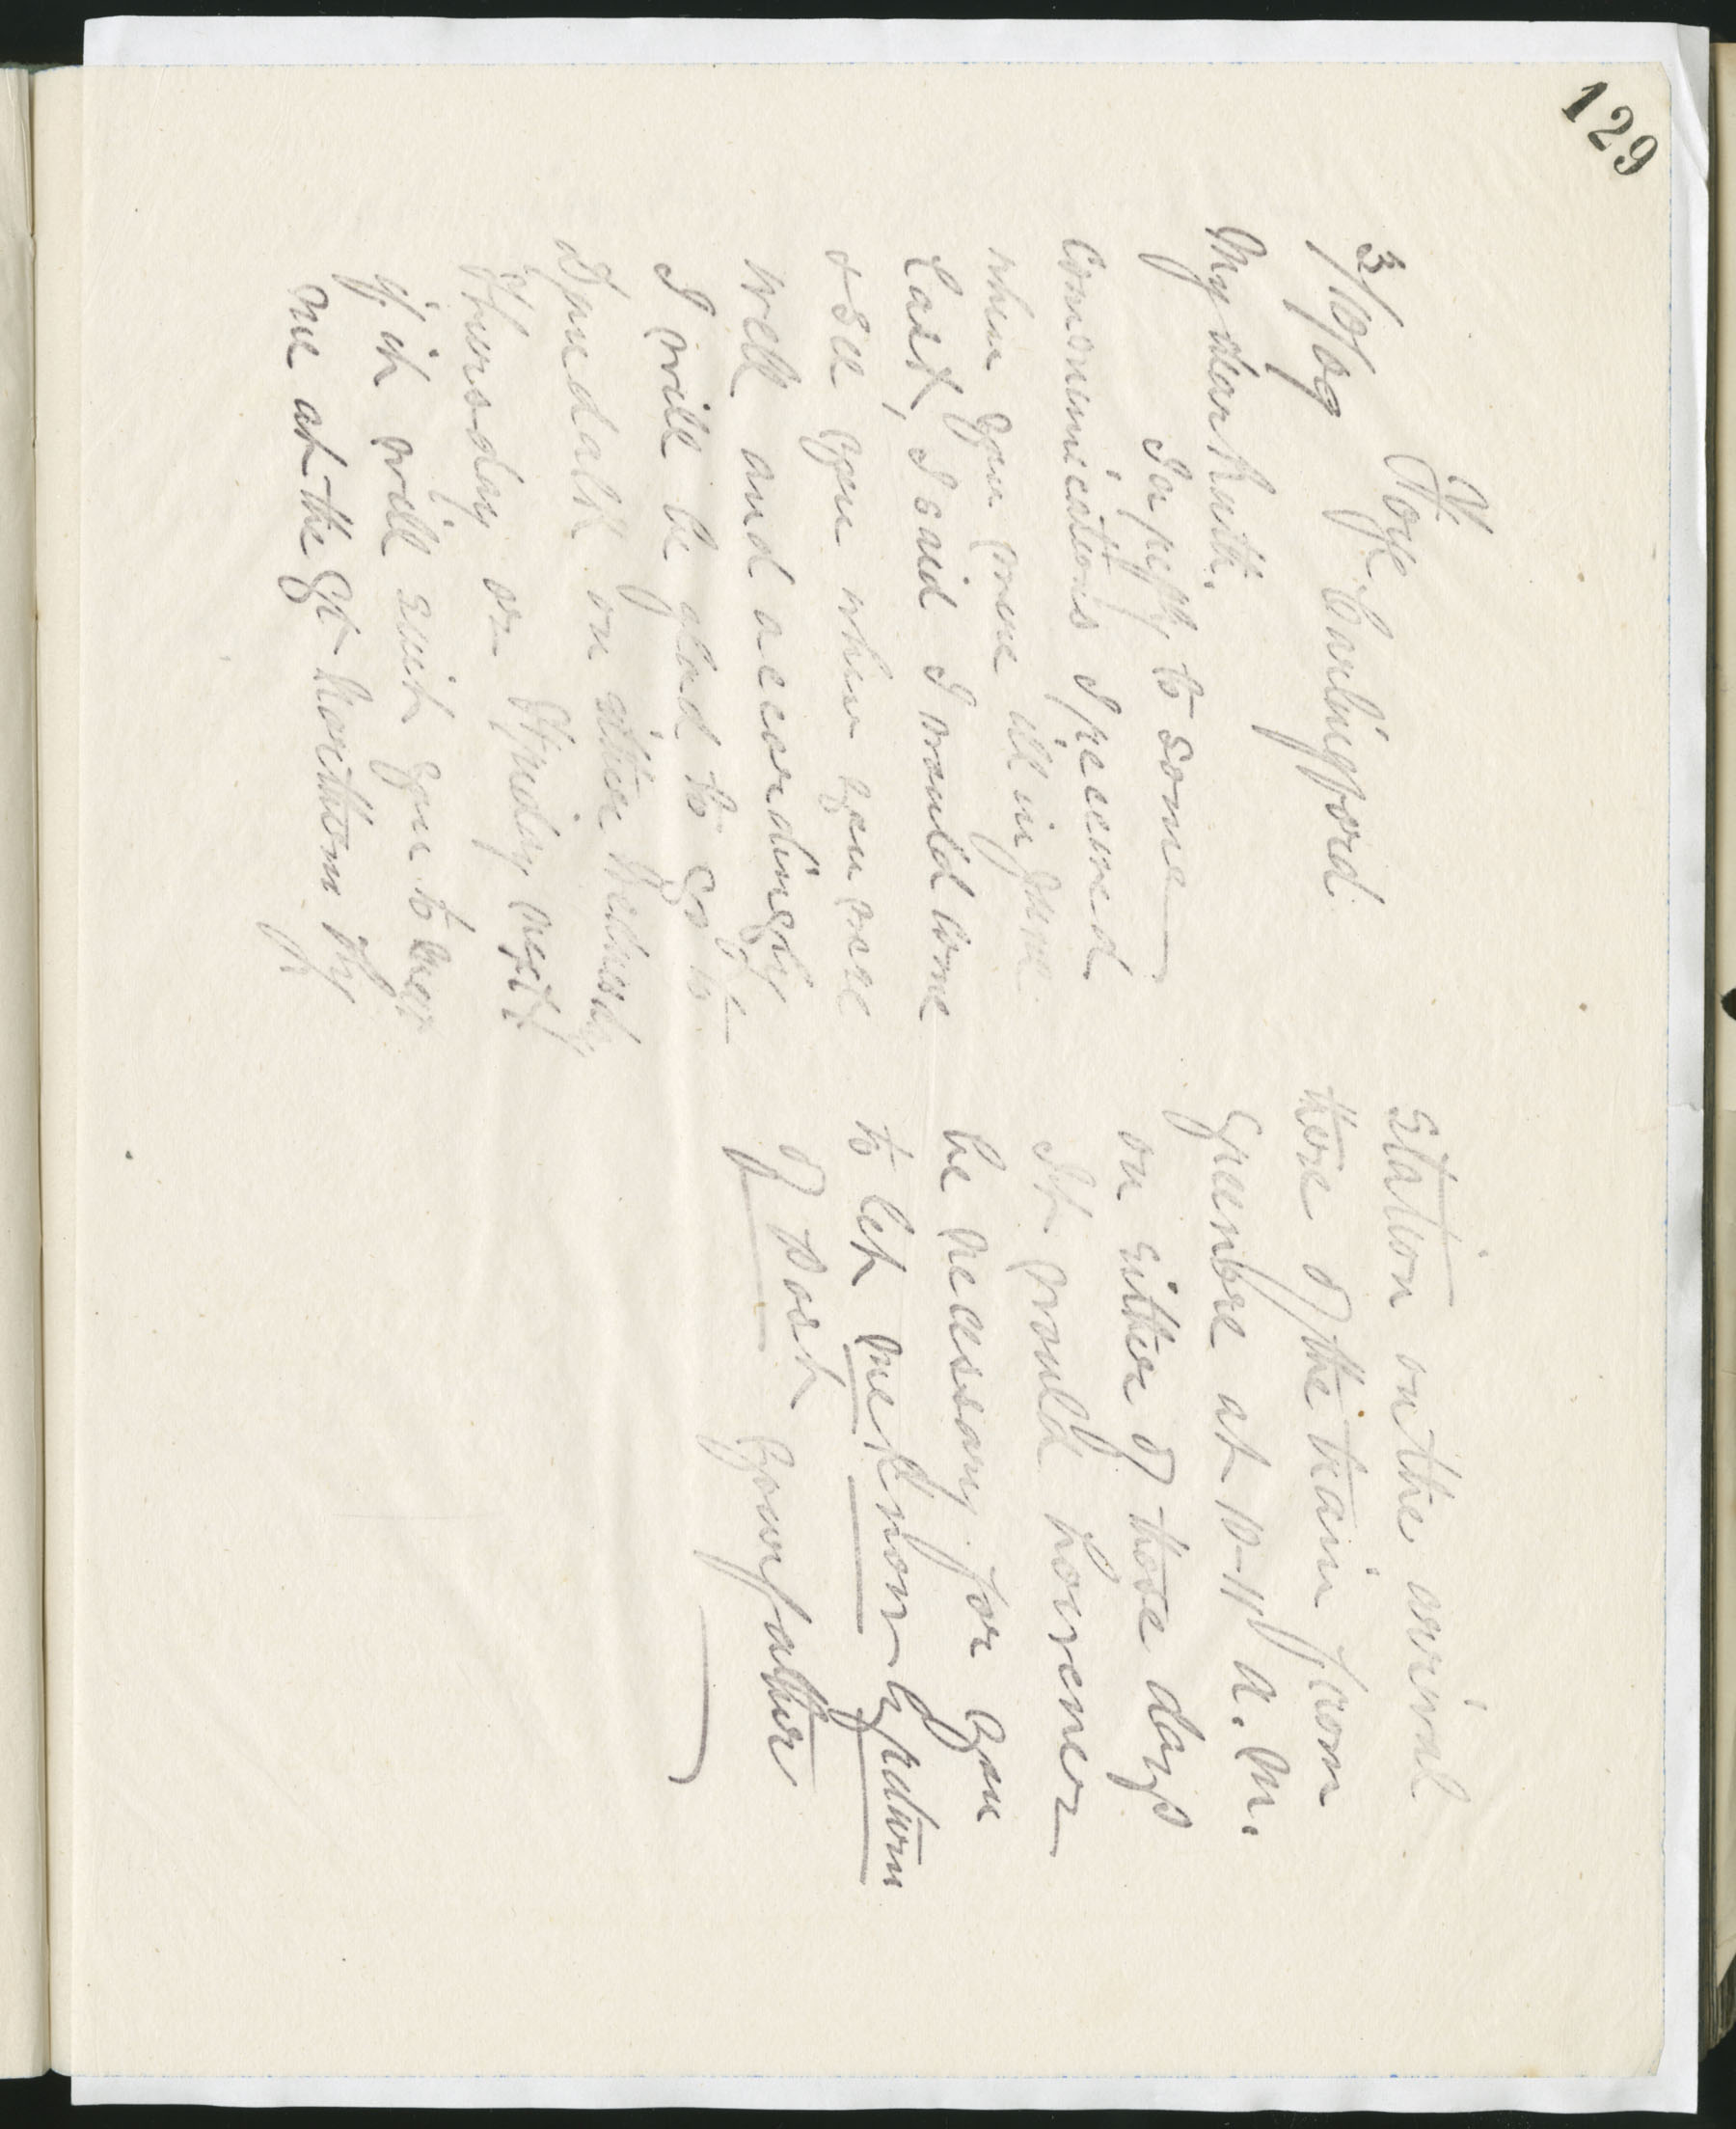 129
The Foye. Carlingford
3/10/09
My dear Ruth.
In reply to some
communications I received
when you were ill in June
last, I said I would come
& see you when you were
well and accordingly
I will be glad to go to
Dundalk on either Wednesday
Thursday or Friday next
if it will suit you to meet
me at the Gt Northern Ry
station on the arrival
there of the train from
Greenore at 10-11 a. m.
on either of those days
It would however
be necessary for you
to let me know by return
of post Your father